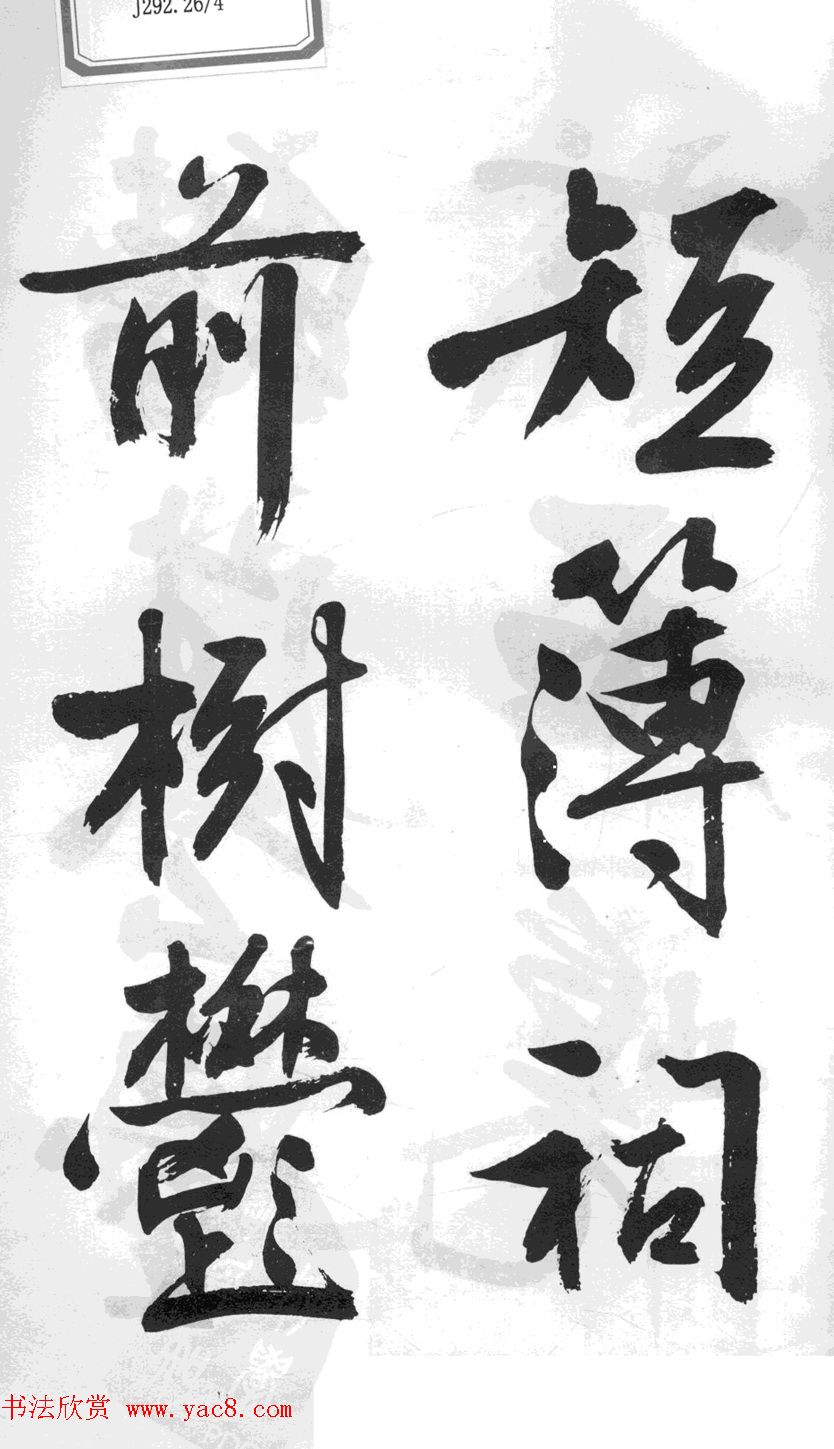 J292.26/4
短簿祠
前樹鬱
书法欣赏 www.yac8.com